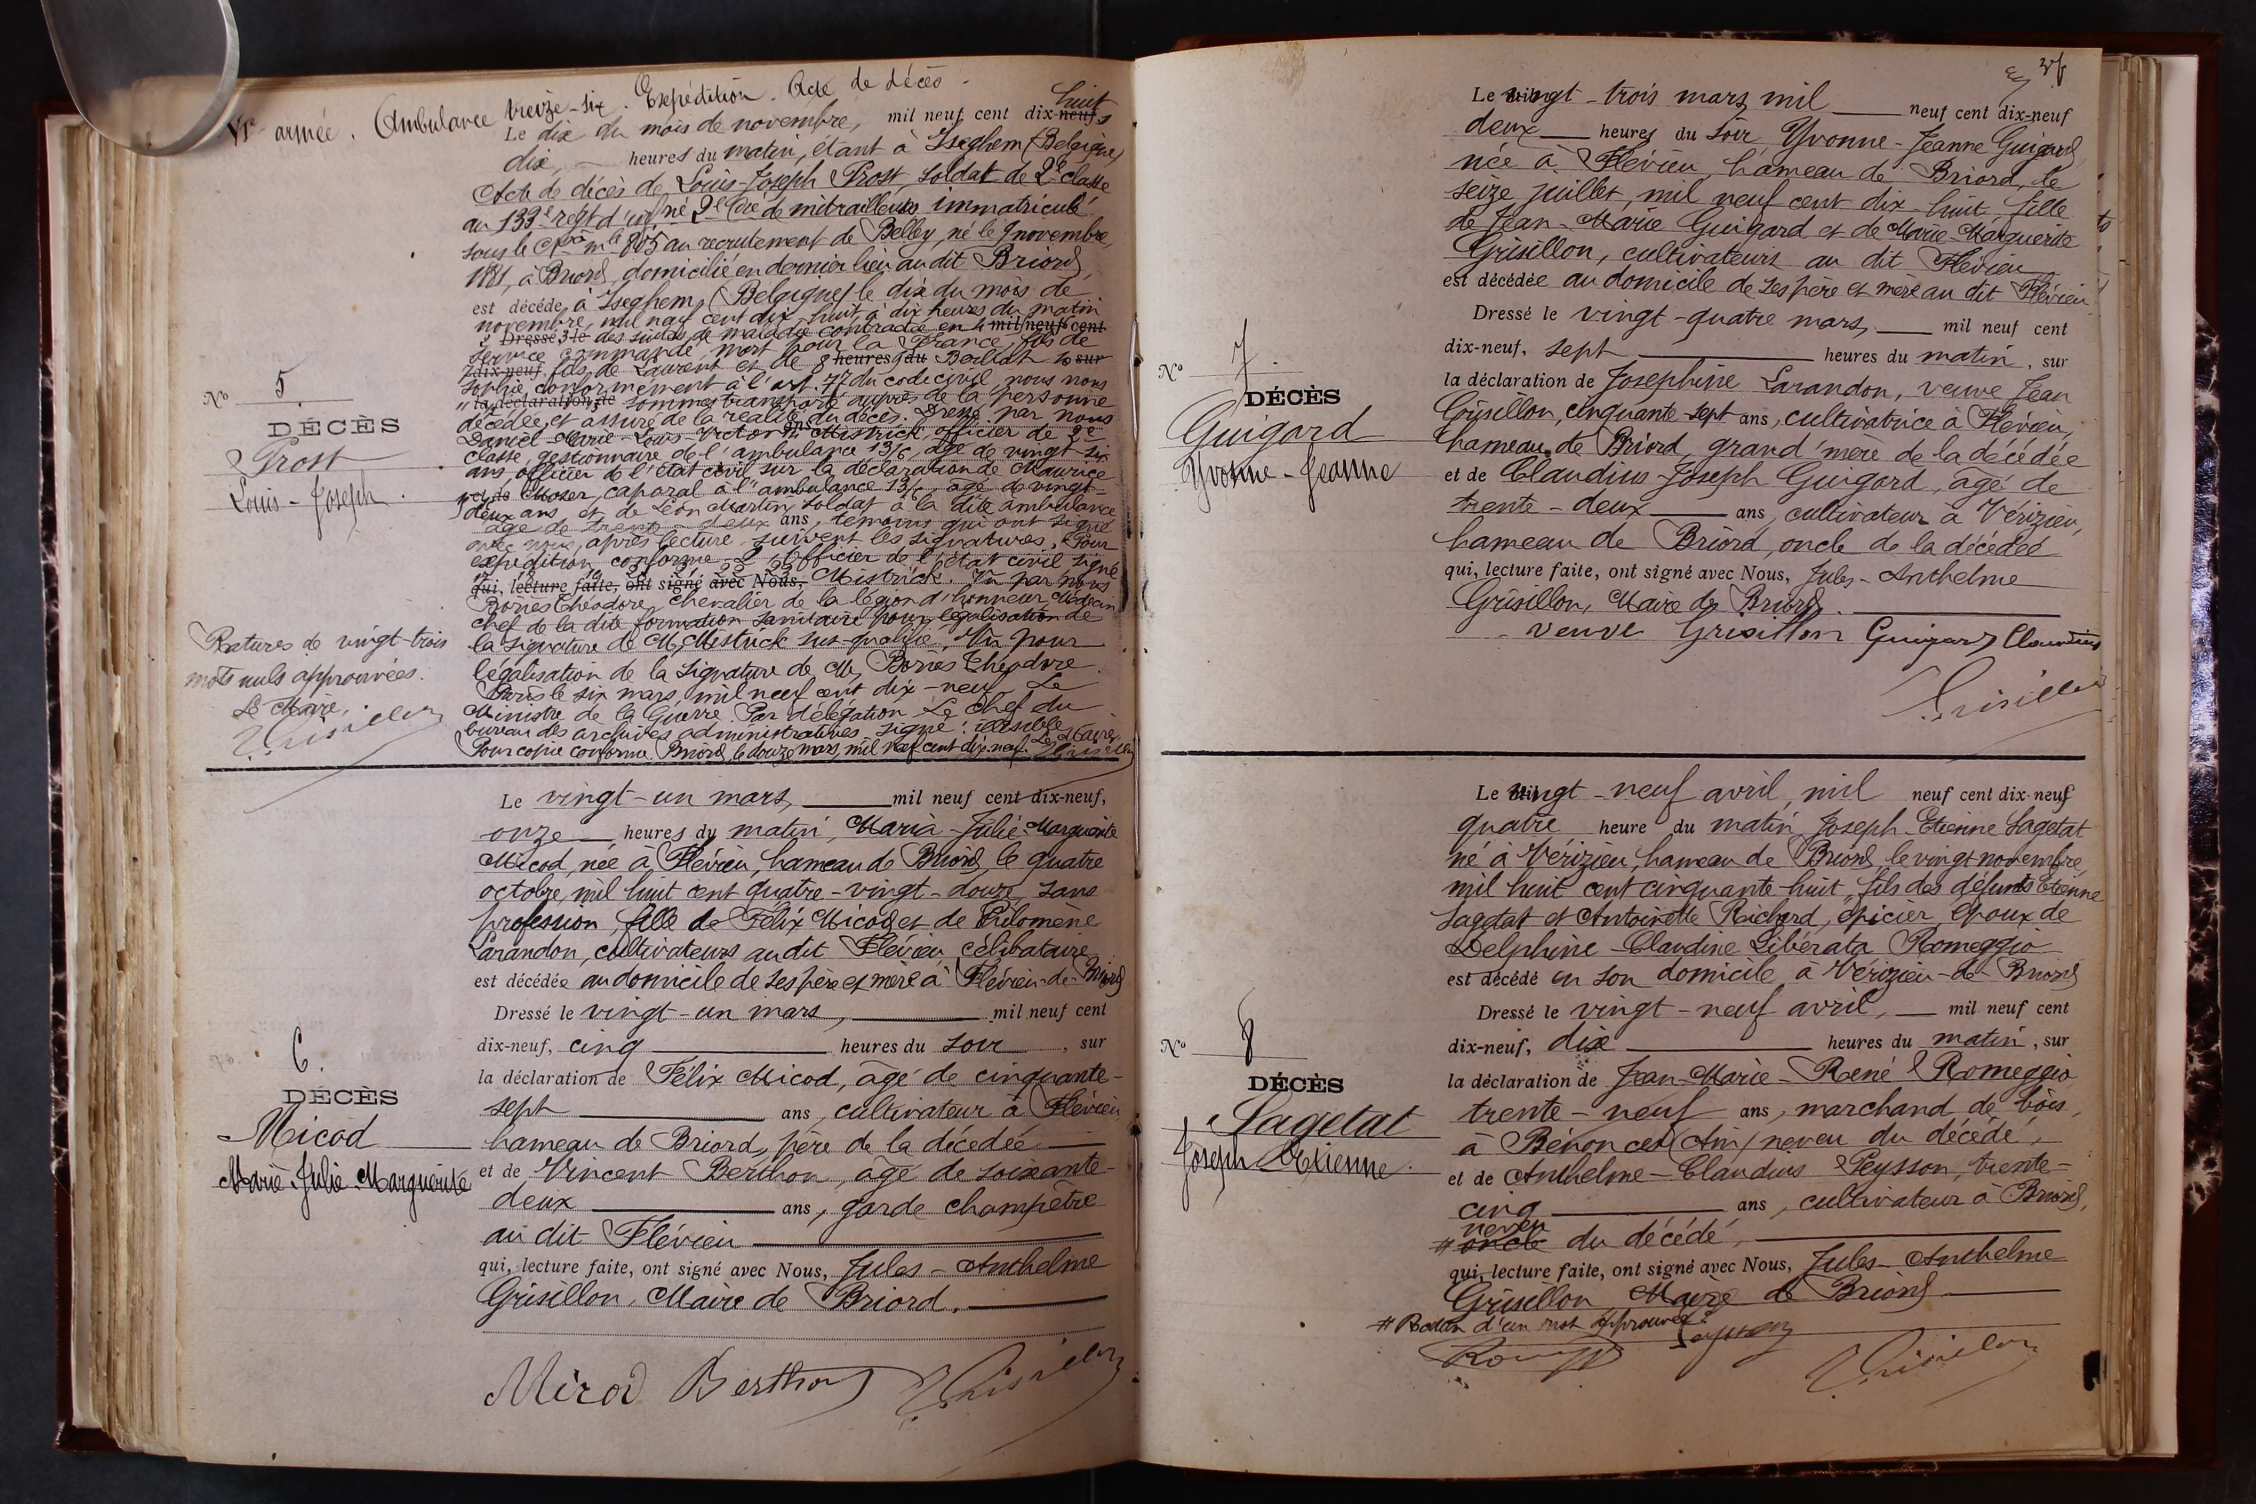 VIe armée. Ambulance treize-six. Expédition. Acte de décès.
huit
Le dix du mois de novembre, mil neuf cent dix-neuf,
dix, heures du matin, étant à Iseghem (Belgique)
Acte de décès de Louis-Joseph Prost, soldat de 2e classe
au 133e regt d'infne 2e Cie de mitrailleuses immatriculé
sous le No mle 805 au recrutement de Belley, né le 9 novembre
1881, à Briord, domicilié en dernier lieu au dit Briord,
est décédé, à Iseghem, (Belgique) le dix du mois de
novembre, mil neuf cent dix-huit à dix heures du matin
Dressé le des suites de maladie contractée en mil neuf cent
service commandé, mort pour la France, fils de
dix-neuf, fils de Laurent et de heures du Baillat sur
Sophie, conformément à l'art. 77 du code civil, nous nous
la déclaration de sommes transporté auprès de la personne
décédée et assuré de la réalité du décès. Dressé par nous
Daniel-Marie-Louis-Victor ans Mistrick, officier de 2e
classe, gestionnaire de l'ambulance 13/6, âgé de vingt-six
ans, officier de l'état civil sur la déclaration de Maurice
et de Moser, caporal à l'ambulance 13/6, âgé de vingt-
deux ans, et de Léon Martin, soldat à la dite ambulance
âgé de trente-deux ans, témoins qui ont signé
avec nous, après lecture. Suivent les signatures. Pour
expédition conforme. L'Officier de l'état civil, signé
qui, lecture faite, ont signé avec Nous, Mistrick. Vu par nous
Bories Théodore, chevalier de la légion d'honneur, Médecin
chef de la dite formation sanitaire pour légalisation de
la signature de M. Mestrick sus-qualifié. Vu pour
légalisation de la signature de M. Bories Théodore.
Paris le six mars, mil neuf cent dix-neuf. Le
Ministre de la Guerre. Par délégation Le chef du
bureau des archives administratives signé : illisible.
Pour copie conforme. Briord, le douze mars, mil neuf cent dix-neuf. Le Maire,
Grisillon
No 5.
DÉCÈS
Prost
Louis-Joseph.
Ratures de vingt-trois
mots nuls approuvées.
Le Maire,
Grisillon
Le vingt-un mars, mil neuf cent dix-neuf,
onze heures du matin, Maria-Julie-Marguerite
Micod, née à Flévieu, hameau de Briord, le quatre
octobre, mil huit cent quatre-vingt-douze, sans
profession, fille de Félix Micod et de Philomène
Larandon, cultivateurs au dit Flévieu, célibataire,
est décédée au domicile de ses père et mère à Flévieu-de-Briord
Dressé le vingt-un mars, mil neuf cent
dix-neuf, cinq heures du soir, sur
la déclaration de Félix Micod, âgé de cinquante-
sept ans, cultivateur à Flévieu,
hameau de Briord, père de la décédée
et de Vincent Berthon, âgé de soixante-
deux ans, garde champêtre
au dit Flévieu
qui, lecture faite, ont signé avec Nous, Jules-Anthelme
Grisillon, Maire de Briord.
Micod Berthon Grisillon
6.
DÉCÈS
Micod
Marie-Julie-Marguerite
37
Le vingt-trois mars mil neuf cent dix-neuf
deux heures du soir, Yvonne-Jeanne Guigard,
née à Flévieu, hameau de Briord, le
seize juillet, mil neuf cent dix-huit, fille
de Jean-Marie Guigard et de Marie-Marguerite
Grisillon, cultivateurs au dit Flévieu
est décédée au domicile de ses père et mère au dit Flévieu
Dressé le vingt-quatre mars, mil neuf cent
dix-neuf, sept heures du matin, sur
la déclaration de Josephine Larandon, veuve Jean
Grisillon, cinquante-sept ans, cultivatrice à Flévieu,
hameau de Briord, grand'mère de la décédée
et de Claudius-Joseph Guigard, âgé de
trente-deux ans, cultivateur à Vérizieu,
hameau de Briord, oncle de la décédée
qui, lecture faite, ont signé avec Nous, Jules-Anthelme
Grisillon, Maire de Briord.
veuve Grisillon Guigard Claudius
Grisillon
No 7.
DÉCÈS
Guigard
Yvonne-Jeanne
Le vingt-neuf avril, mil neuf cent dix-neuf
quatre heure du matin Joseph-Etienne Sagetat
né à Vérizieu, hameau de Briord, le vingt novembre,
mil huit cent cinquante-huit, fils des défunts Etienne
Sagetat et Antoinette Richard, épicier, époux de
Delphine-Claudine Libérata Romeggio
est décédé en son domicile à Vérizieu-de-Briord
Dressé le vingt-neuf avril, mil neuf cent
dix-neuf, dix heures du matin, sur
la déclaration de Jean-Marie-René Romeggio
trente-neuf ans, marchand de bois,
à Bénonces (Ain) neveu du décédé,
et de Anthelme-Claudius Peysson, trente-
cinq ans, cultivateur à Briord,
neveu
# oncle du décédé,
qui, lecture faite, ont signé avec Nous, Jules-Anthelme
Grisillon Maire de Briord
# Radiation d'un mot approuvée
Peysson
Grisillon
No 8
DÉCÈS
Sagetat
Joseph Etienne.